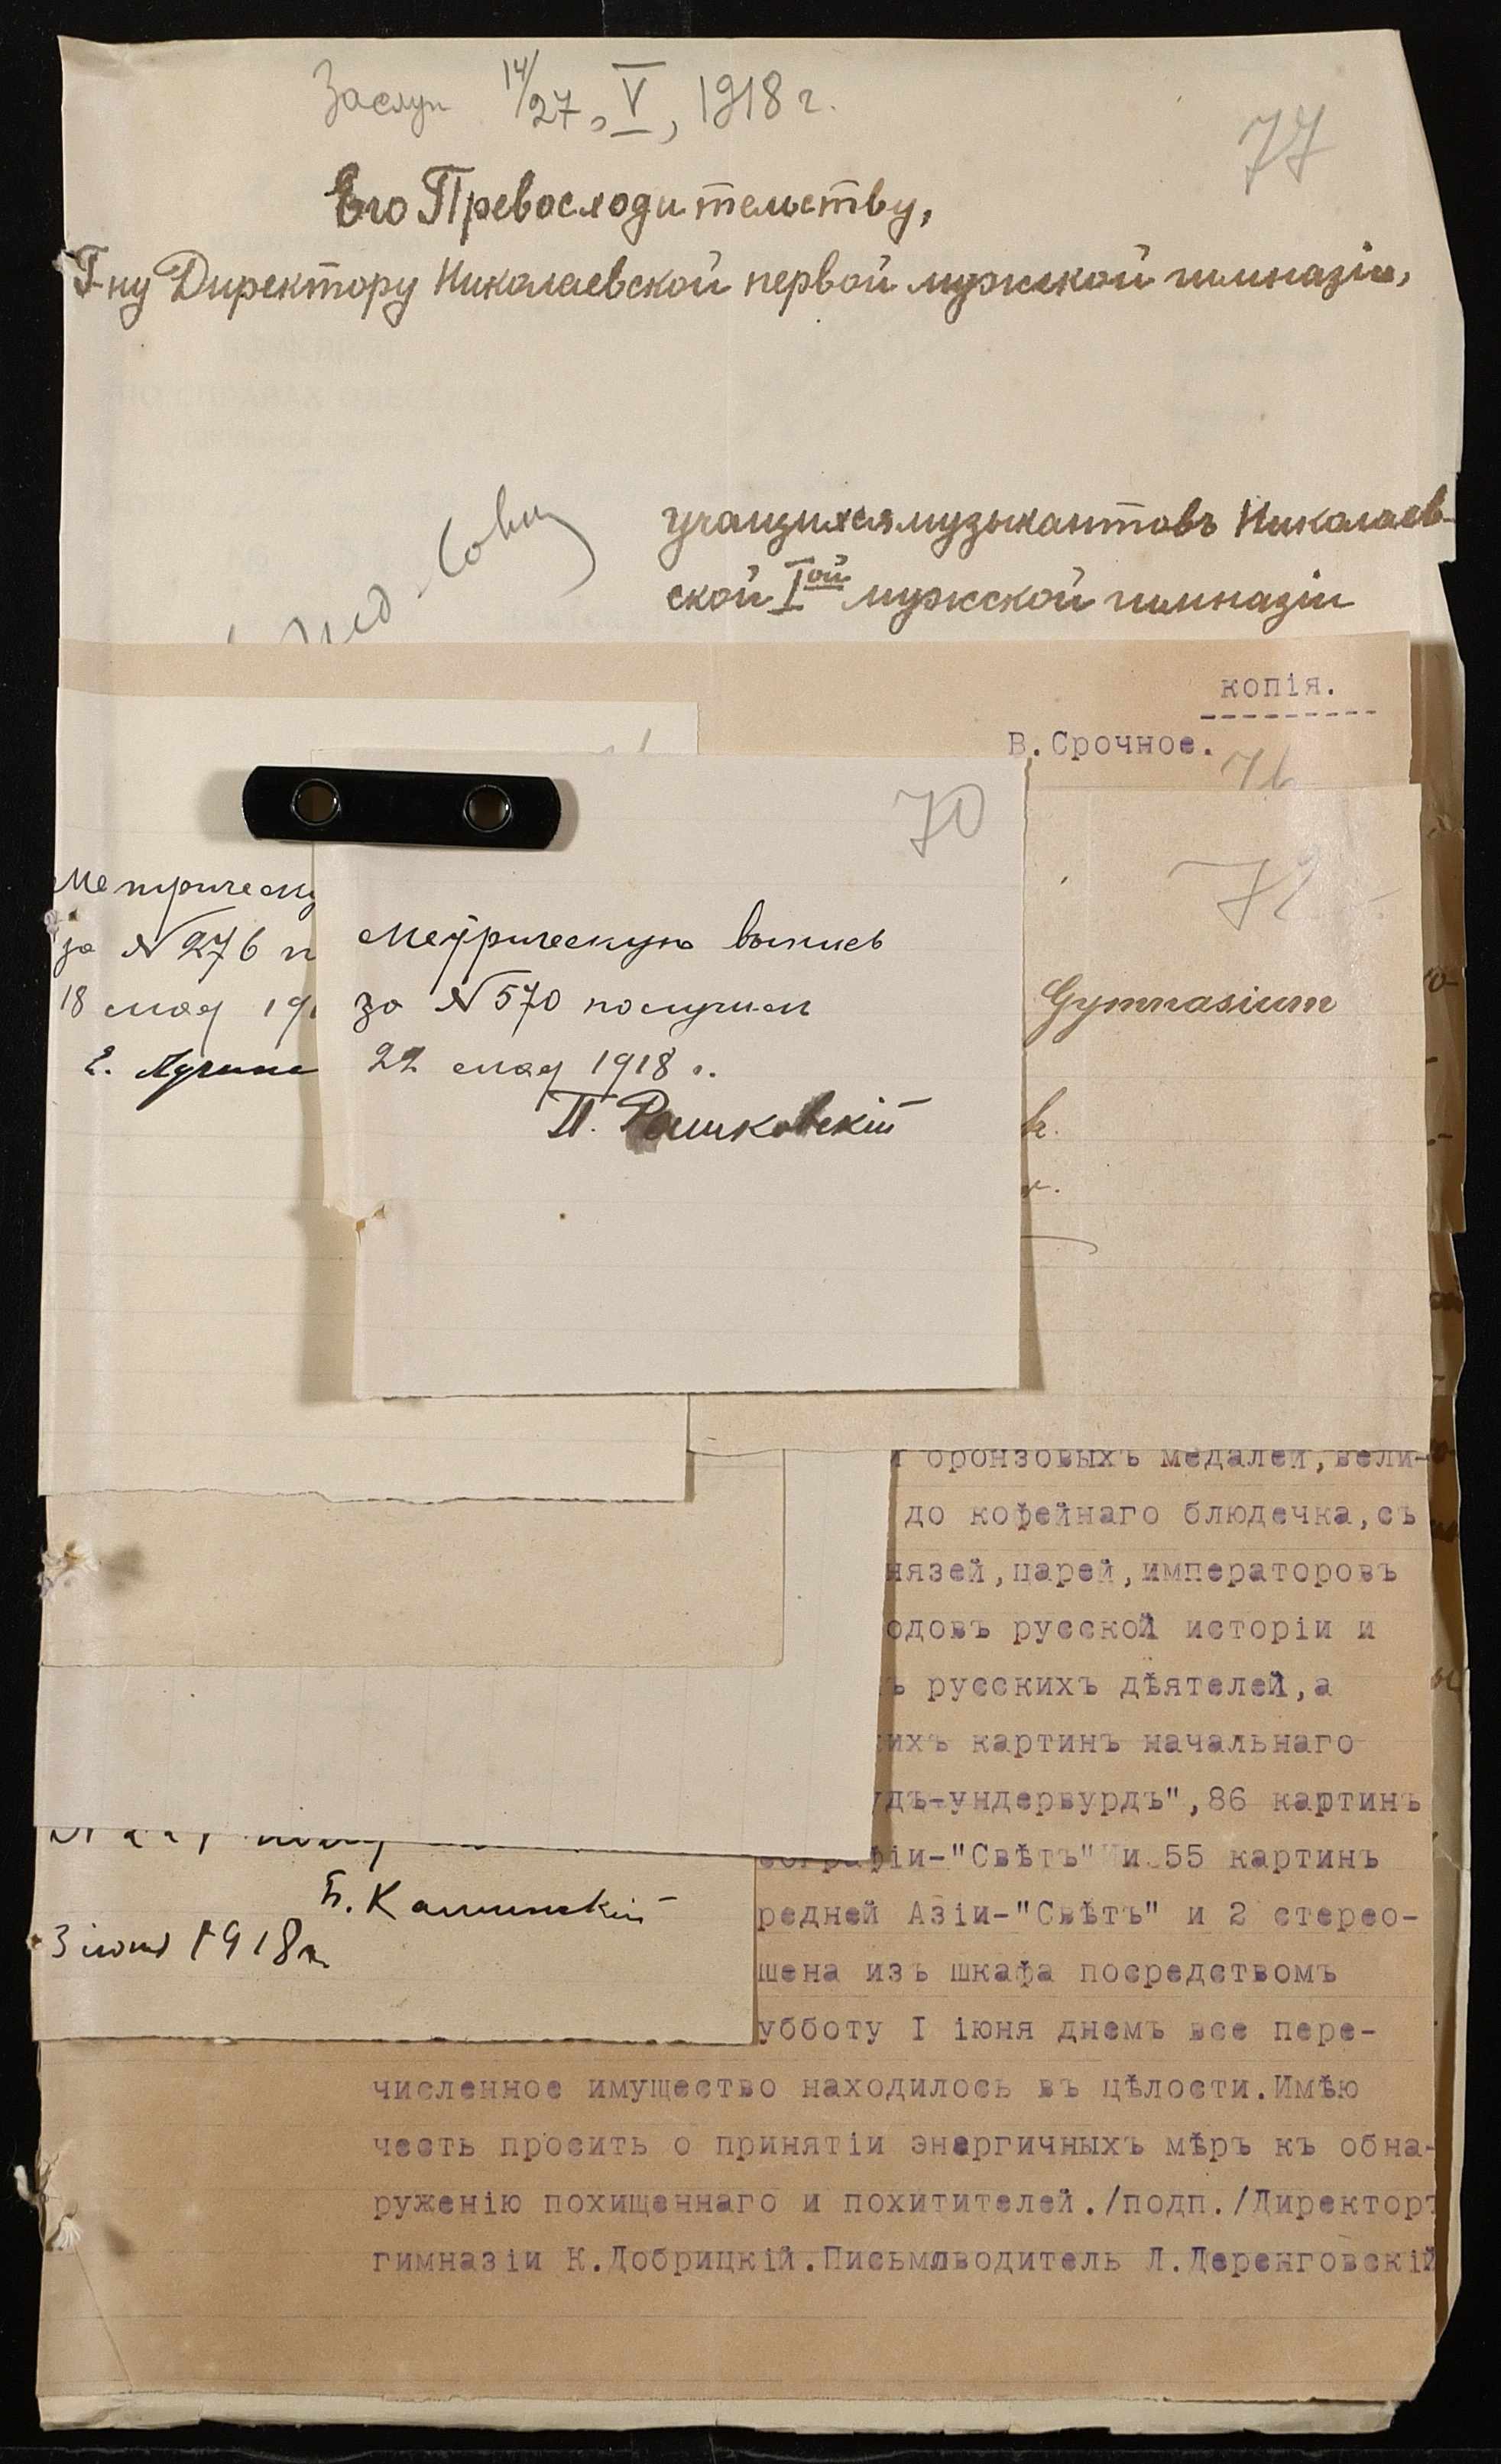 Заслуш 14/27, V, 1918 г.
77
Его Превосходительству,
Г-ну Директору Николаевской первой мужской гимназіи,
учащихся музыкантовъ Николаев-
ской Iой мужской гимназіи
копія.
В.Срочное.
76
70
72
Метрическу
за № 276 п
18 мая 19
Метрическую выпись
за № 570 получилъ
22 мая 1918 г.
П. Рашковскій
Gymnasium
бронзовыхъ медалей,вели-
до кофейнаго блюдечка,съ
нязей,царей,императоровъ
одовъ русской исторіи и
ъ русскихъ дѣятелей,а
ихъ картинъ начальнаго
дъ-ундервурдъ",86 картинъ
еографіи-"Свѣтъ" и 55 картинъ
редней Азіи-"Свѣтъ" и 2 стерео-
шена изъ шкафа посредствомъ
убботу I іюня днемъ все пере-
численное имущество находилось въ цѣлости.Имѣю
честь просить о принятіи энергичныхъ мѣръ къ обна-
руженію похищеннаго и похитителей./подп./Директоръ
гимназіи К.Добрицкій.Письмоводитель Л.Деренговскій
Б. Каминскій
3 іюня 1918 г.